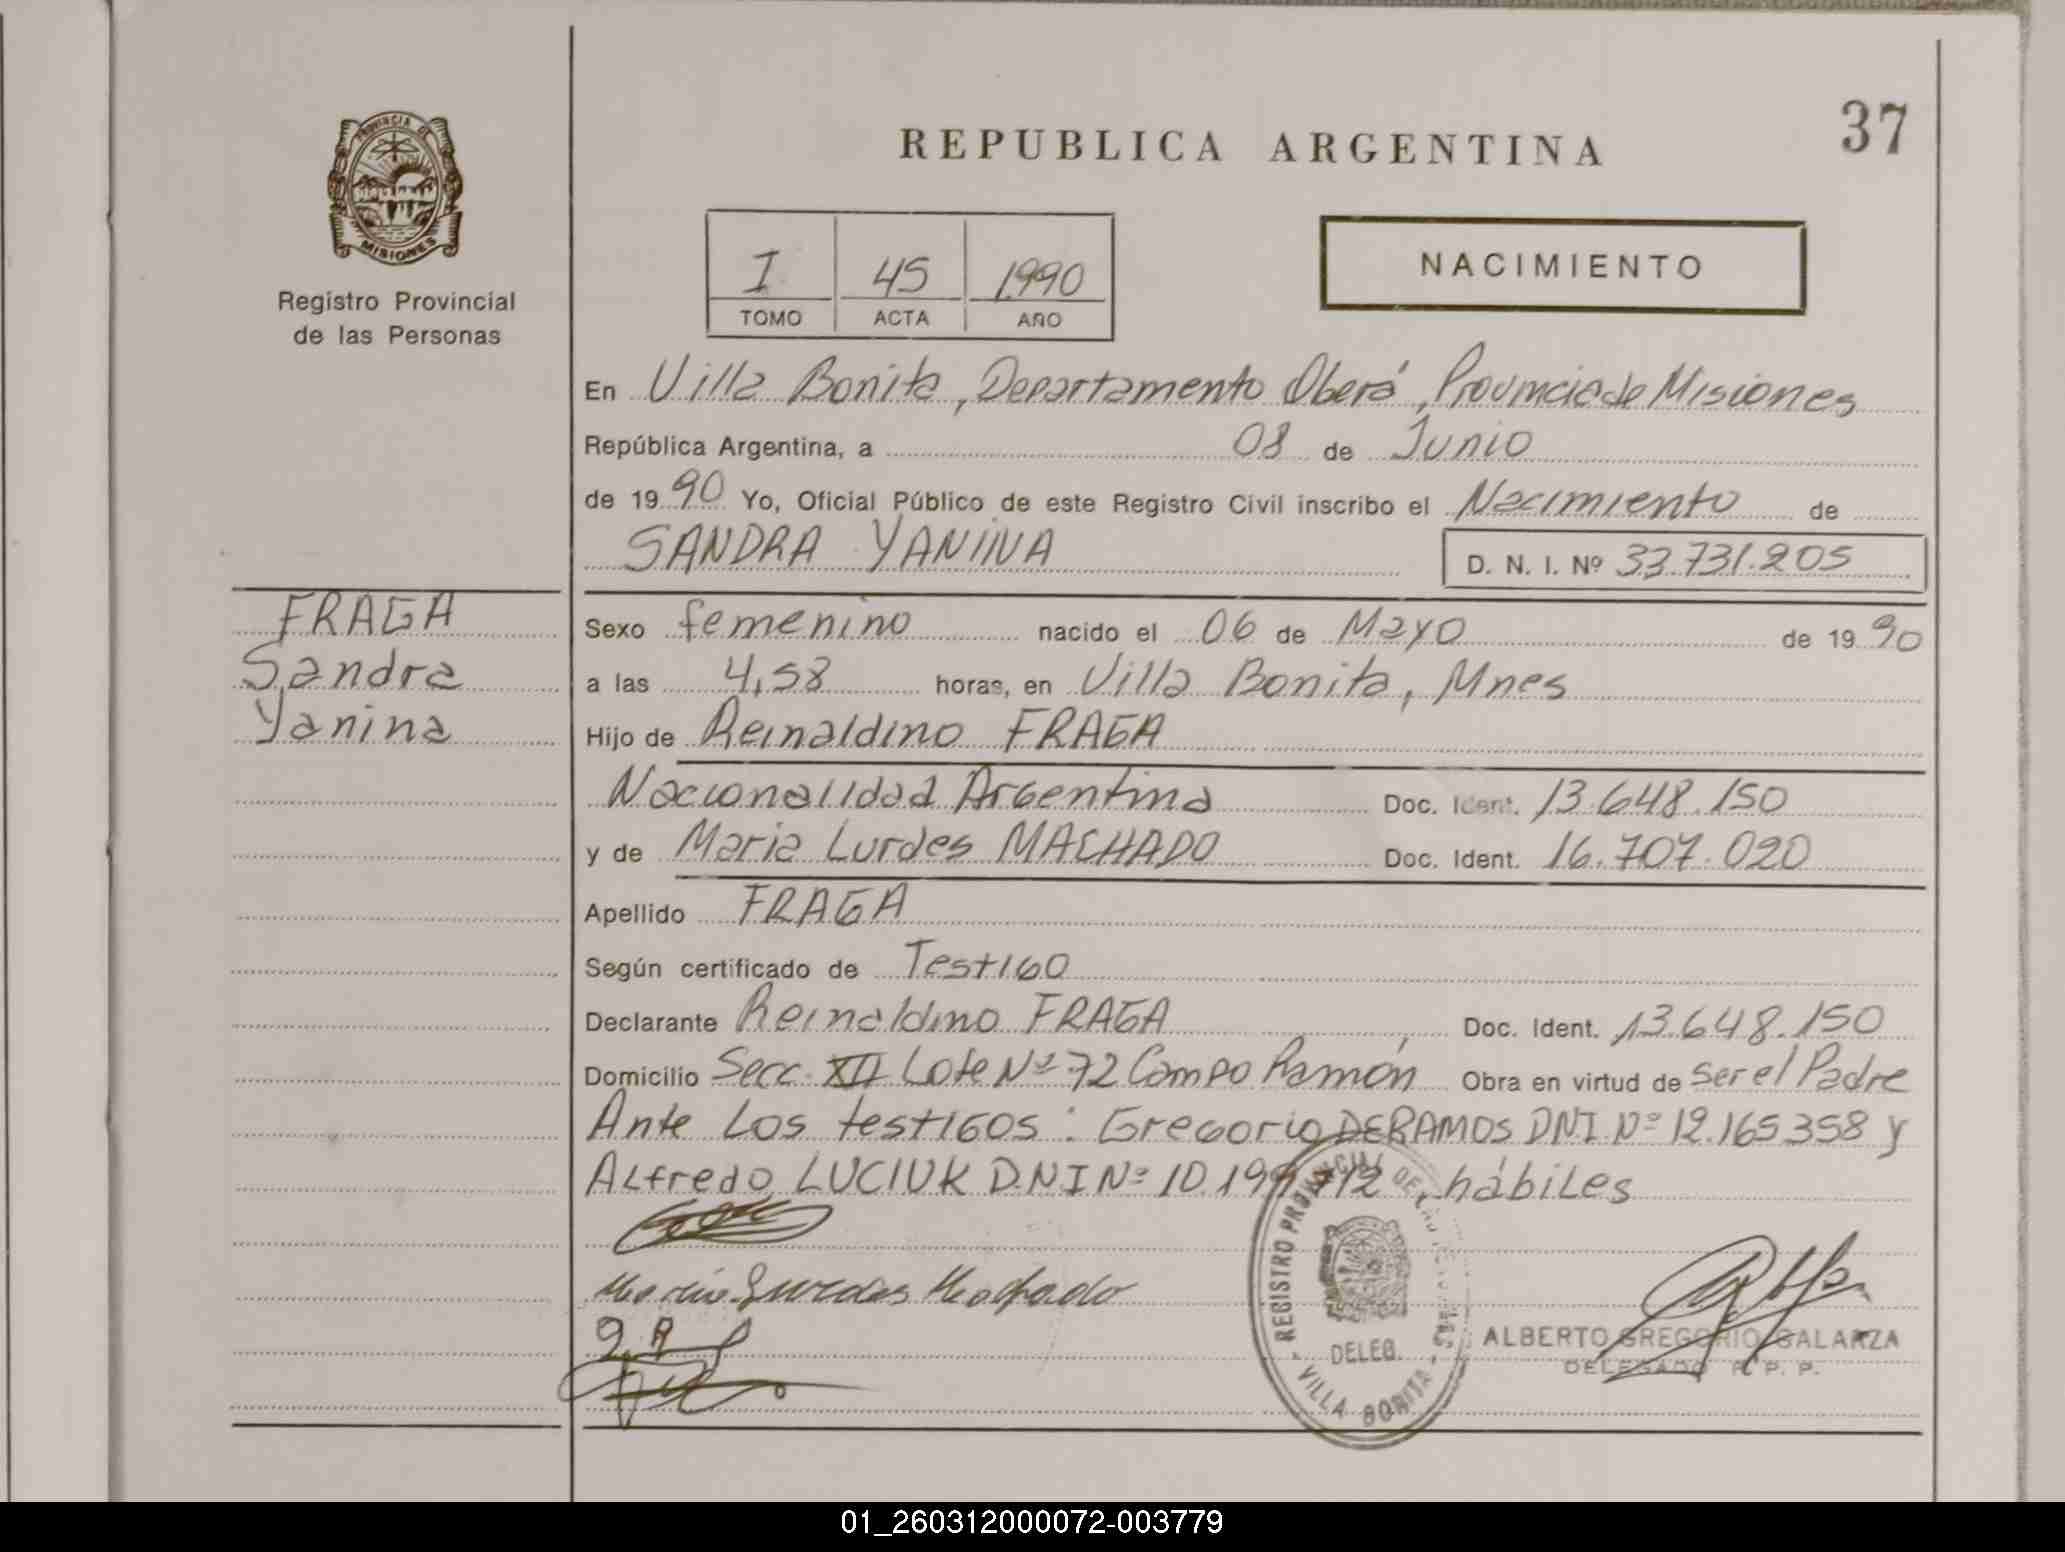 37
REPUBLICA ARGENTINA
PROVINCIA DE
MISIONES
Registro Provincial
de las Personas
I 45 1990
TOMO ACTA AÑO
NACIMIENTO
En Villa Bonita, Departamento Oberá, Provincia de Misiones
República Argentina, a 08 de Junio
de 1990 Yo, Oficial Público de este Registro Civil inscribo el Nacimiento de
SANDRA YANINA D. N. I. Nº 33.731.205
FRAGA
Sandra
Yanina
Sexo femenino nacido el 06 de Mayo de 1990
a las 4,58 horas, en Villa Bonita, Mnes
Hijo de Reinaldino FRAGA
Nacionalidad Argentina Doc. Ident. 13.648.150
y de Maria Lurdes MACHADO Doc. Ident. 16.707.020
Apellido FRAGA
Según certificado de Testigo
Declarante Reinaldino FRAGA, Doc. Ident. 13.648.150
Domicilio Secc. XII Lote Nº 72 Campo Ramón Obra en virtud de ser el Padre
Ante Los testigos: Gregorio DERAMOS DNI Nº 12.165358 y
Alfredo LUCIUK D.N.I Nº 10.199 712, hábiles
Maria Lurdes Machado
REGISTRO PROVINCIAL DE
DELEG.
VILLA BONITA
ALBERTO GREGORIO GALARZA
DELEGADO R. P. P.
01_260312000072-003779